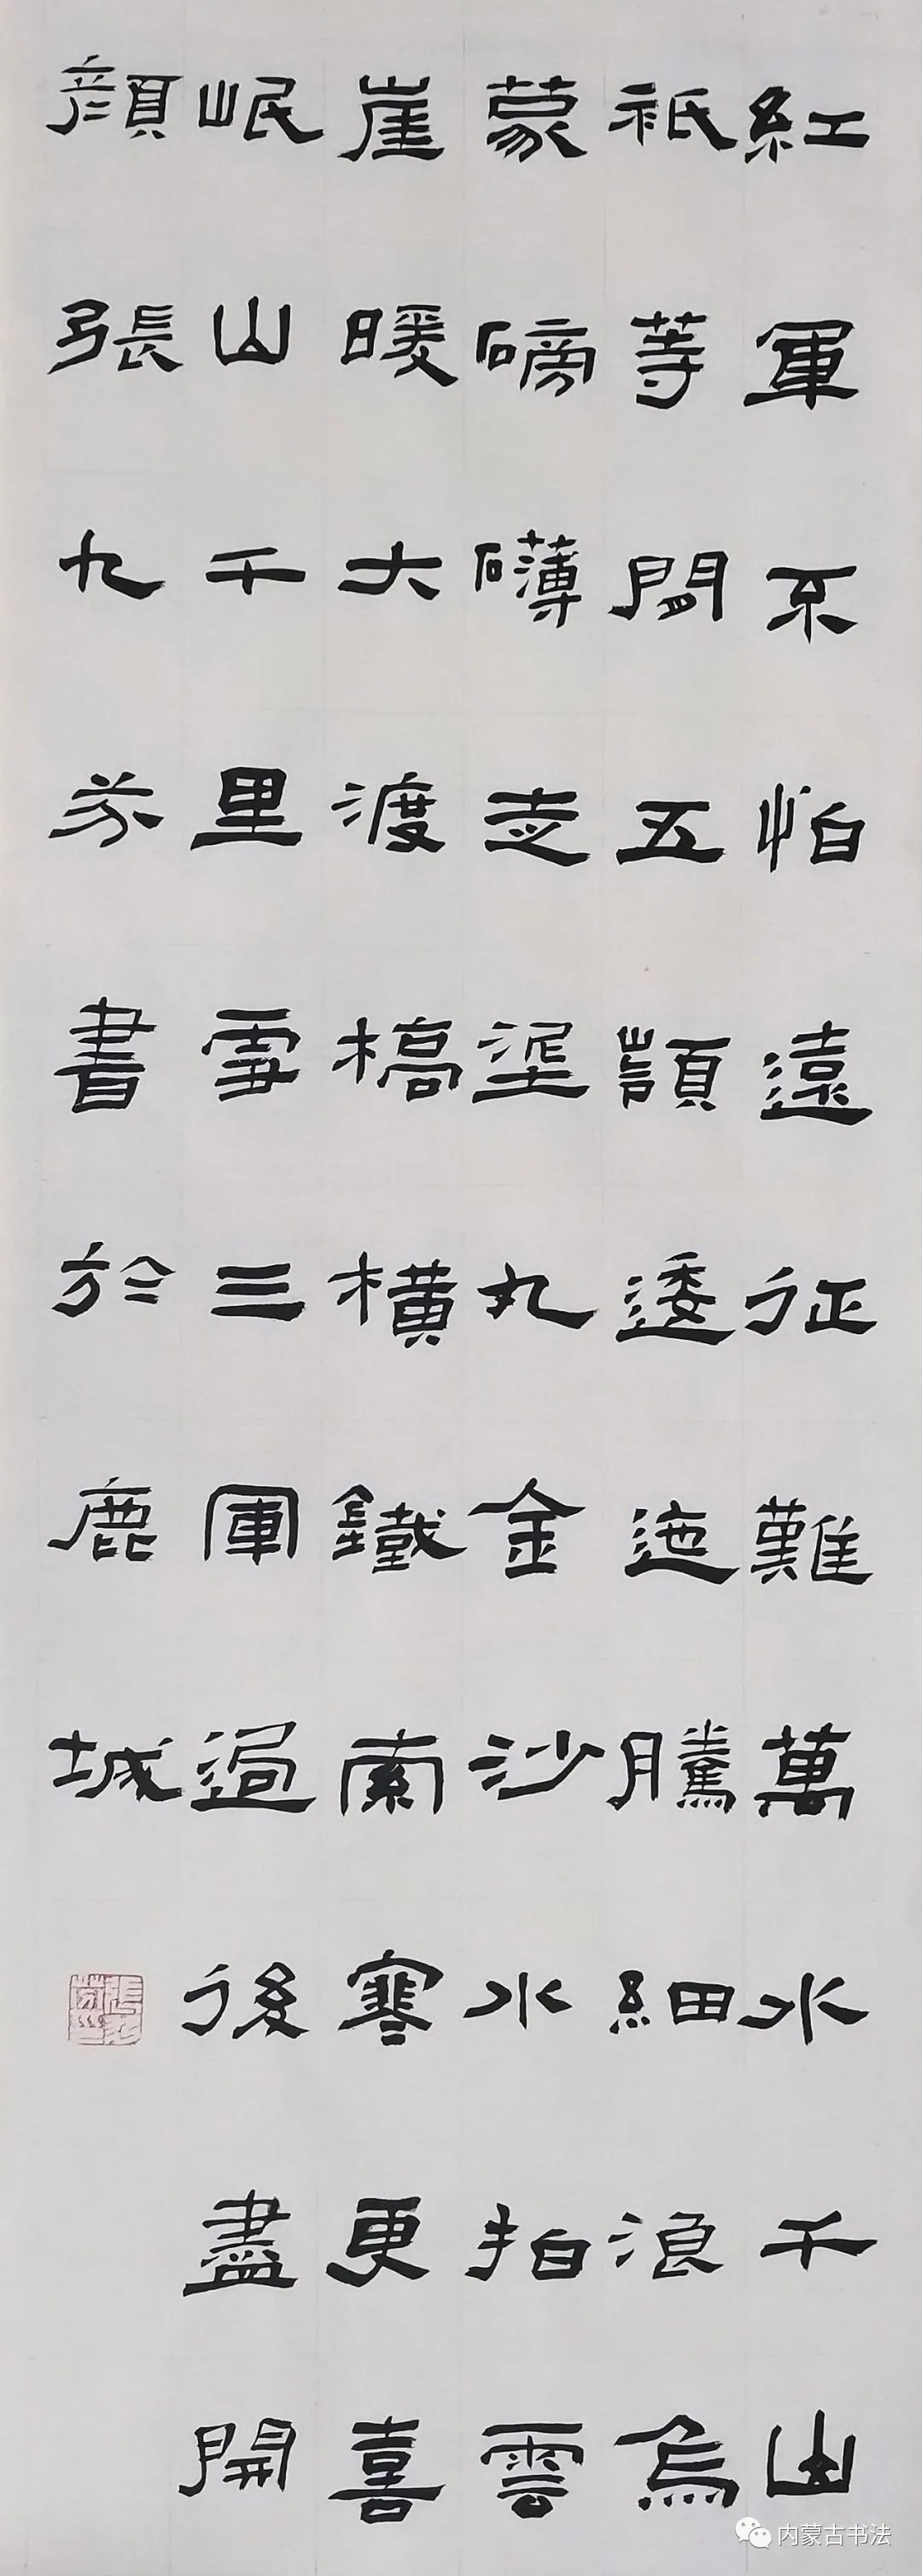 紅軍不怕遠征難萬水千山
祇等閒五嶺逶迤騰細浪烏
蒙磅礴走埿丸金沙水拍雲
崖暖大渡橋橫鐵索寒更喜
岷山千里雪三軍過後盡開
顏張九芬書於鹿城
内蒙古书法